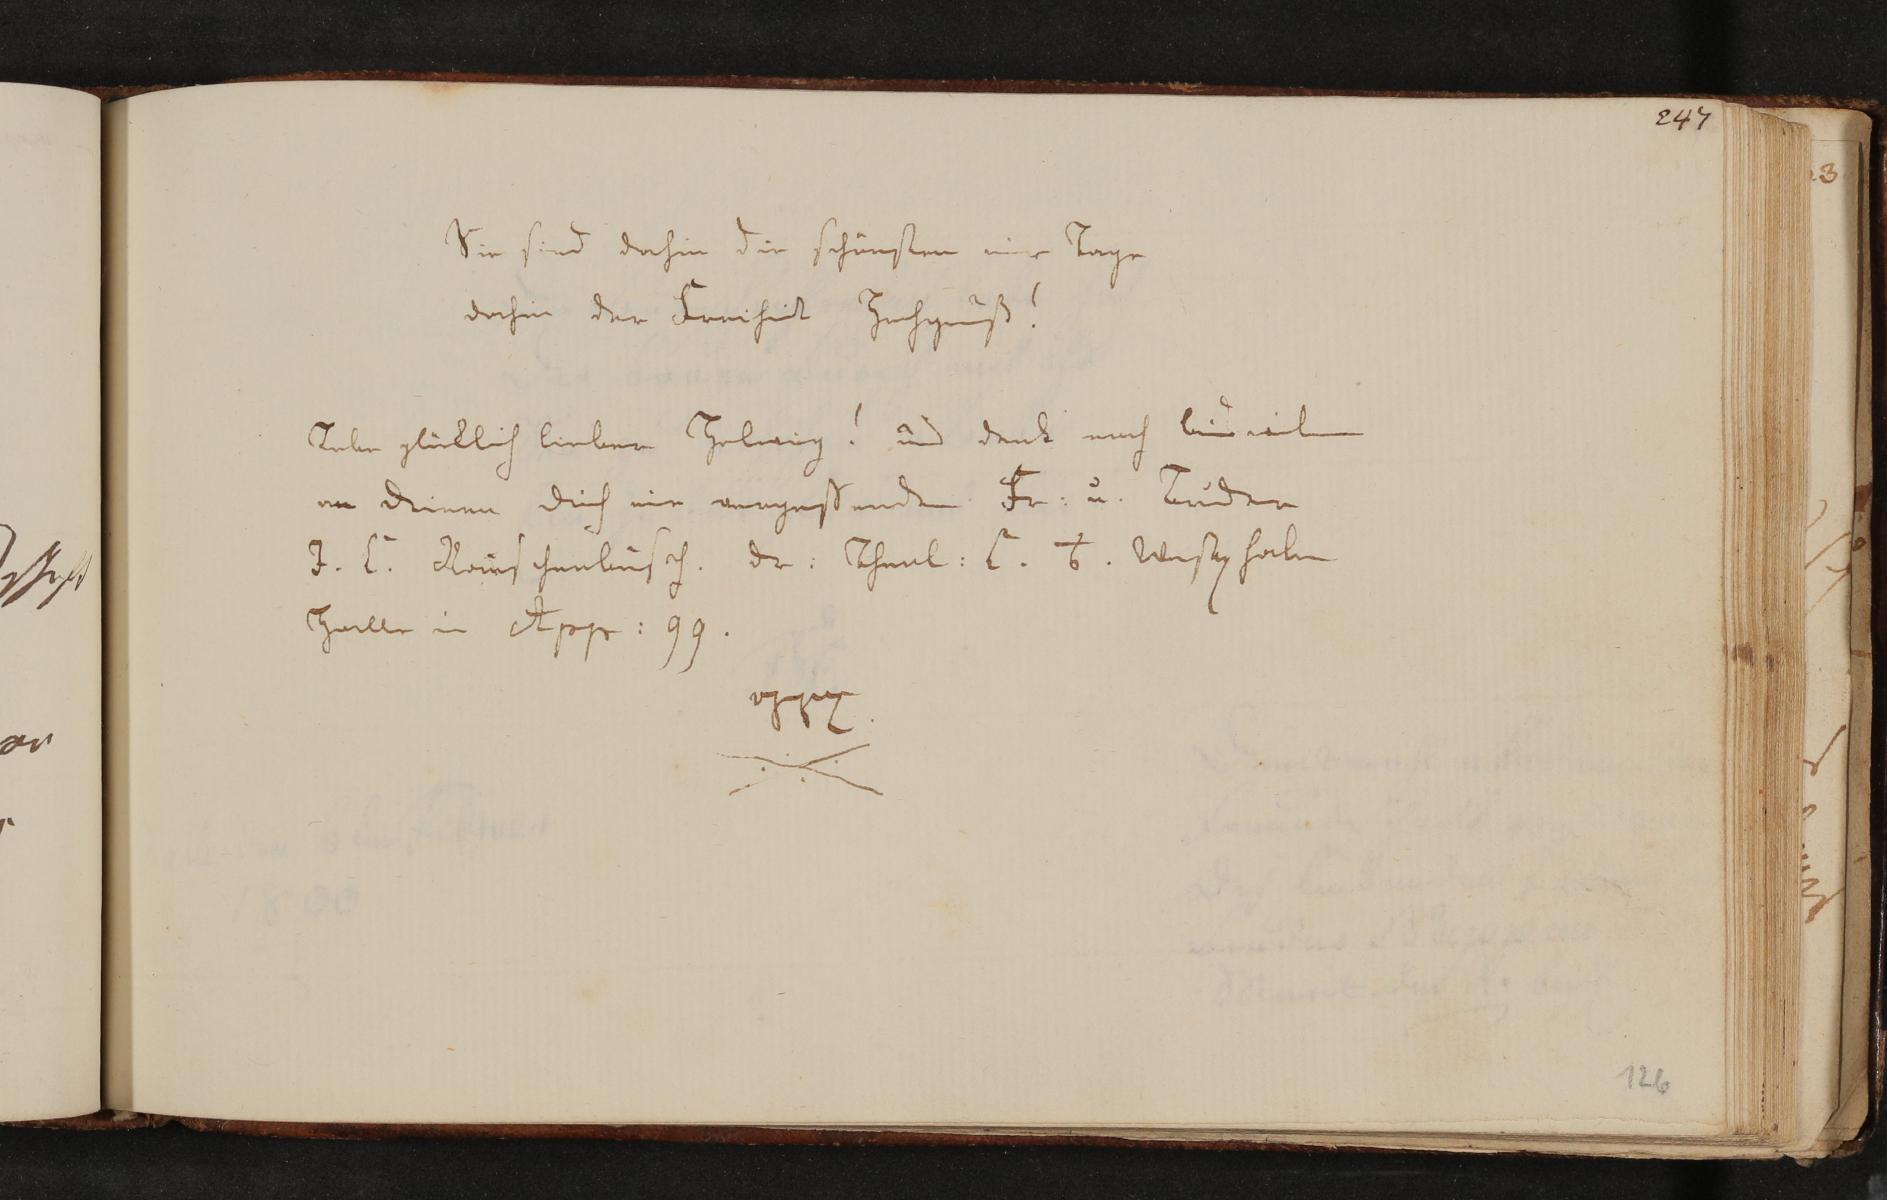 247
Sie sind dahin die schönsten mir Tage
dahin der Freiheit Hochgenuß!
Lebe glücklich lieber Helwig! und denk auch bisweilen
an deinen dich nie vergessenden Fr: u. Bruder
J. C. Rauschenbusch. der: Theol: C. a. Westphalen
Halle im App: 99.
126